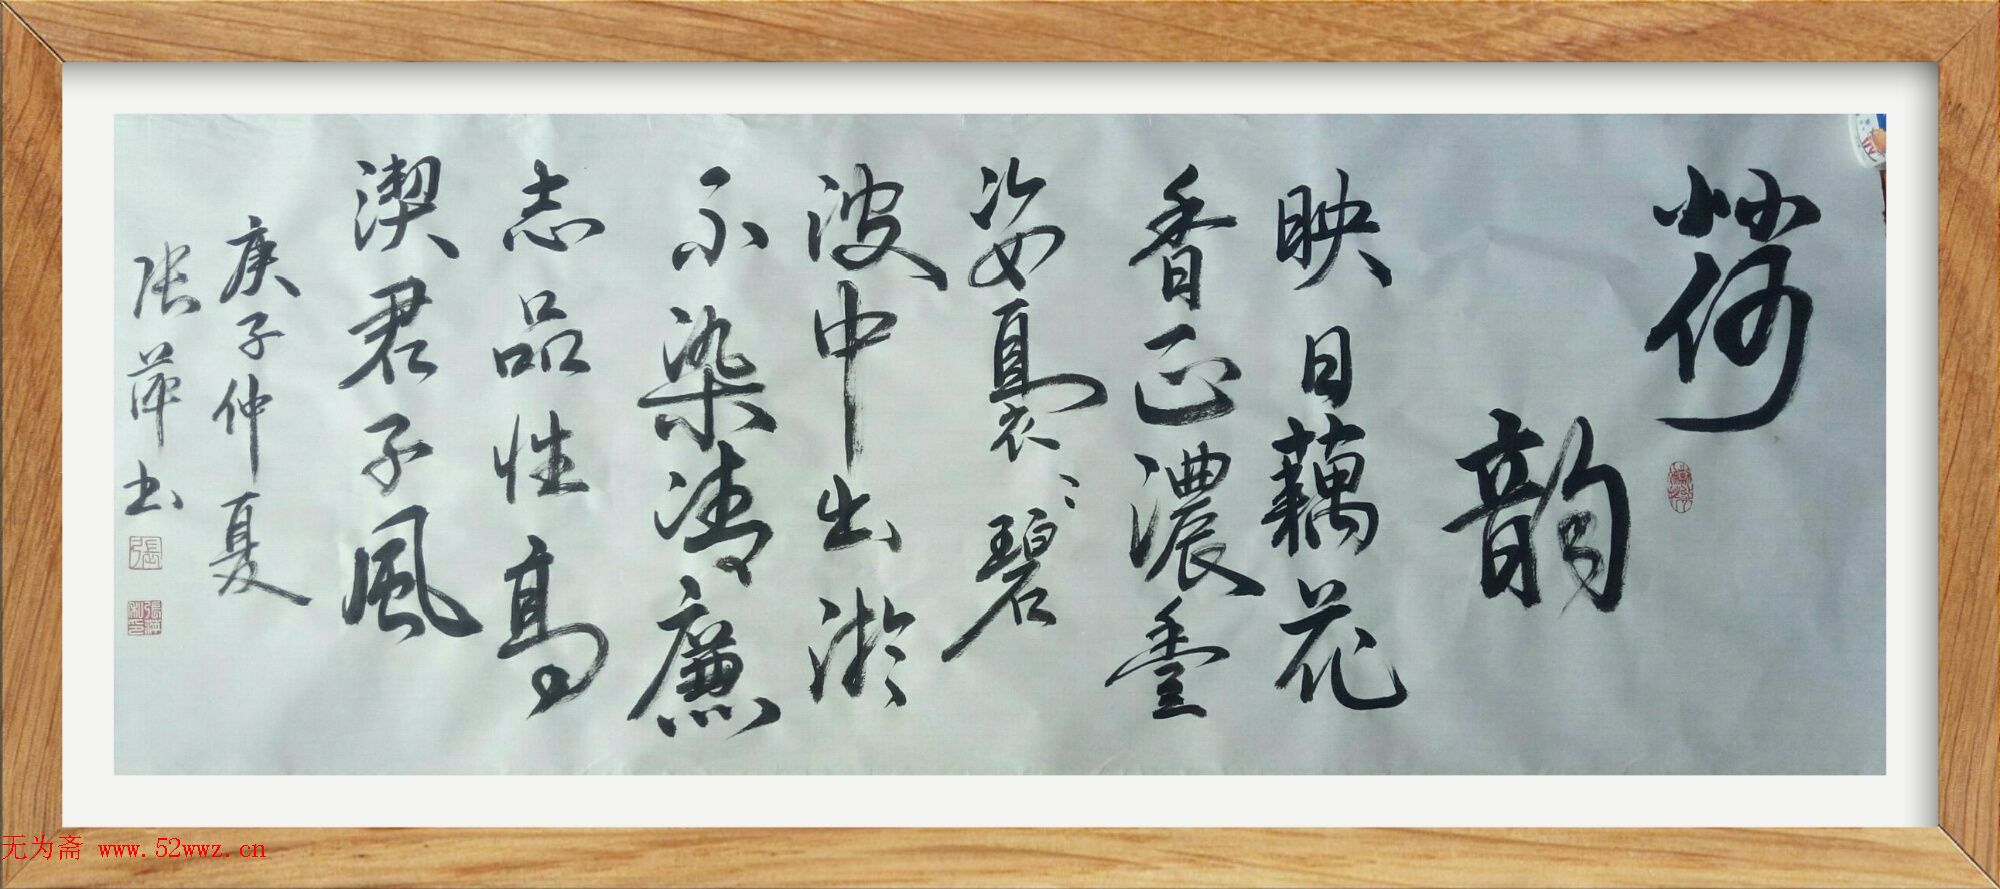 荷韵
映日藕花
香正濃豐
姿裊〻碧
波中出淤
不染清廉
志品性高
潔君子風
庚子仲夏
张萍书
張
張萍私印
无为斋 www.52wwz.cn